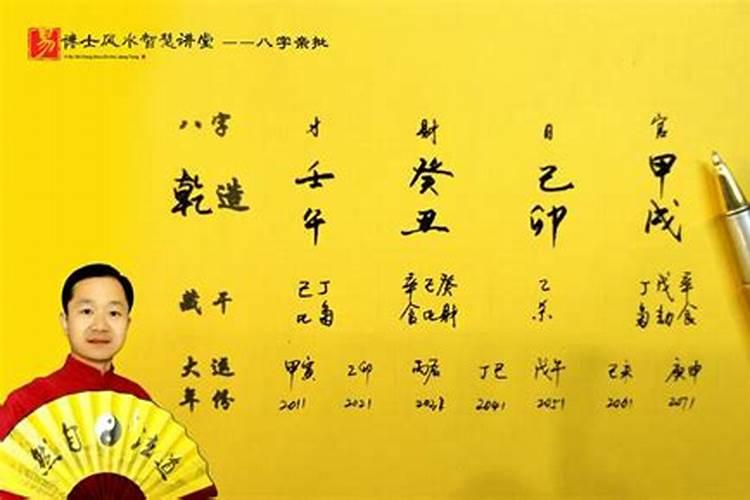 易 博士风水智慧讲堂 ——八字亲批
八字 才 财 日 官
乾造 壬 癸 己 甲
午 丑 卯 戌
藏干 己丁 辛己癸 乙 丁戊辛
比枭 食比财 杀 枭劫食
大运 甲寅 乙卯 丙辰 丁巳 戊午 己未 庚申
年份 2011 2021 2041 2051 2061 2071
道法自然